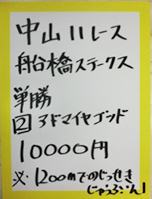 中山11レース
船橋ステークス
単勝
②ヲドマイセゴッド
10000円
※1200mでのじっせき
じゅうぶん!